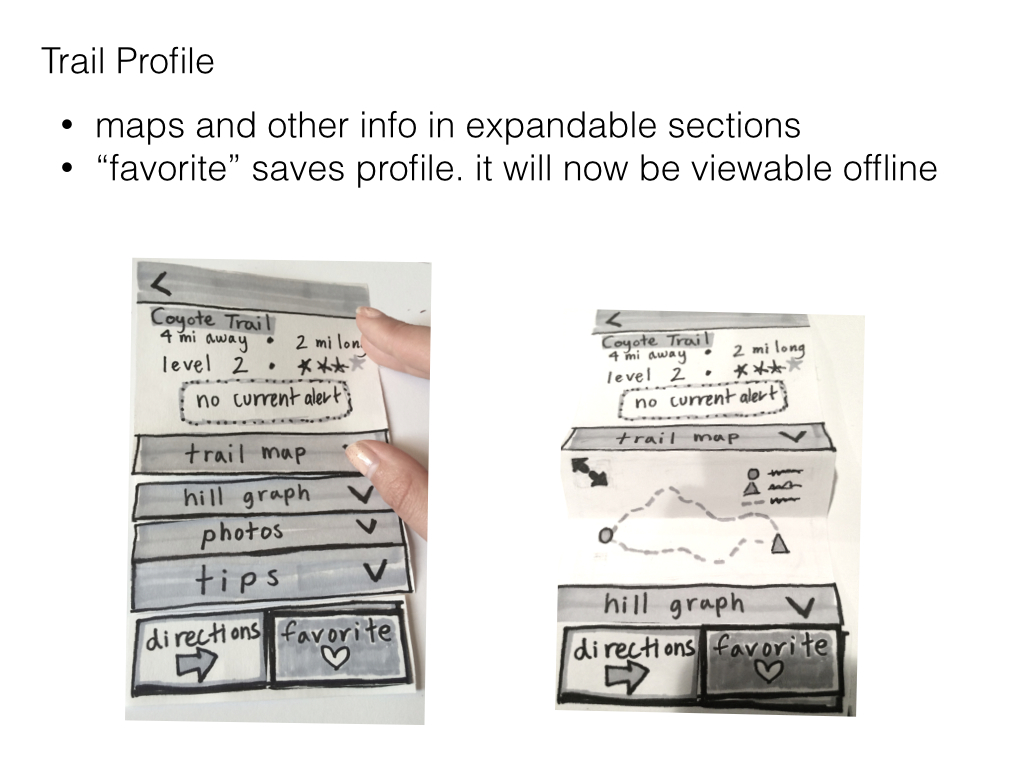 Trail Profile
• maps and other info in expandable sections
• “favorite” saves profile. it will now be viewable offline
<
Coyote Trail
4 mi away • 2 mi long
level 2 •
no current alert
trail map
hill graph
photos
tips
directions
favorite
<
Coyote Trail
4 mi away • 2 mi long
level 2 •
no current alert
trail map
hill graph
directions
favorite